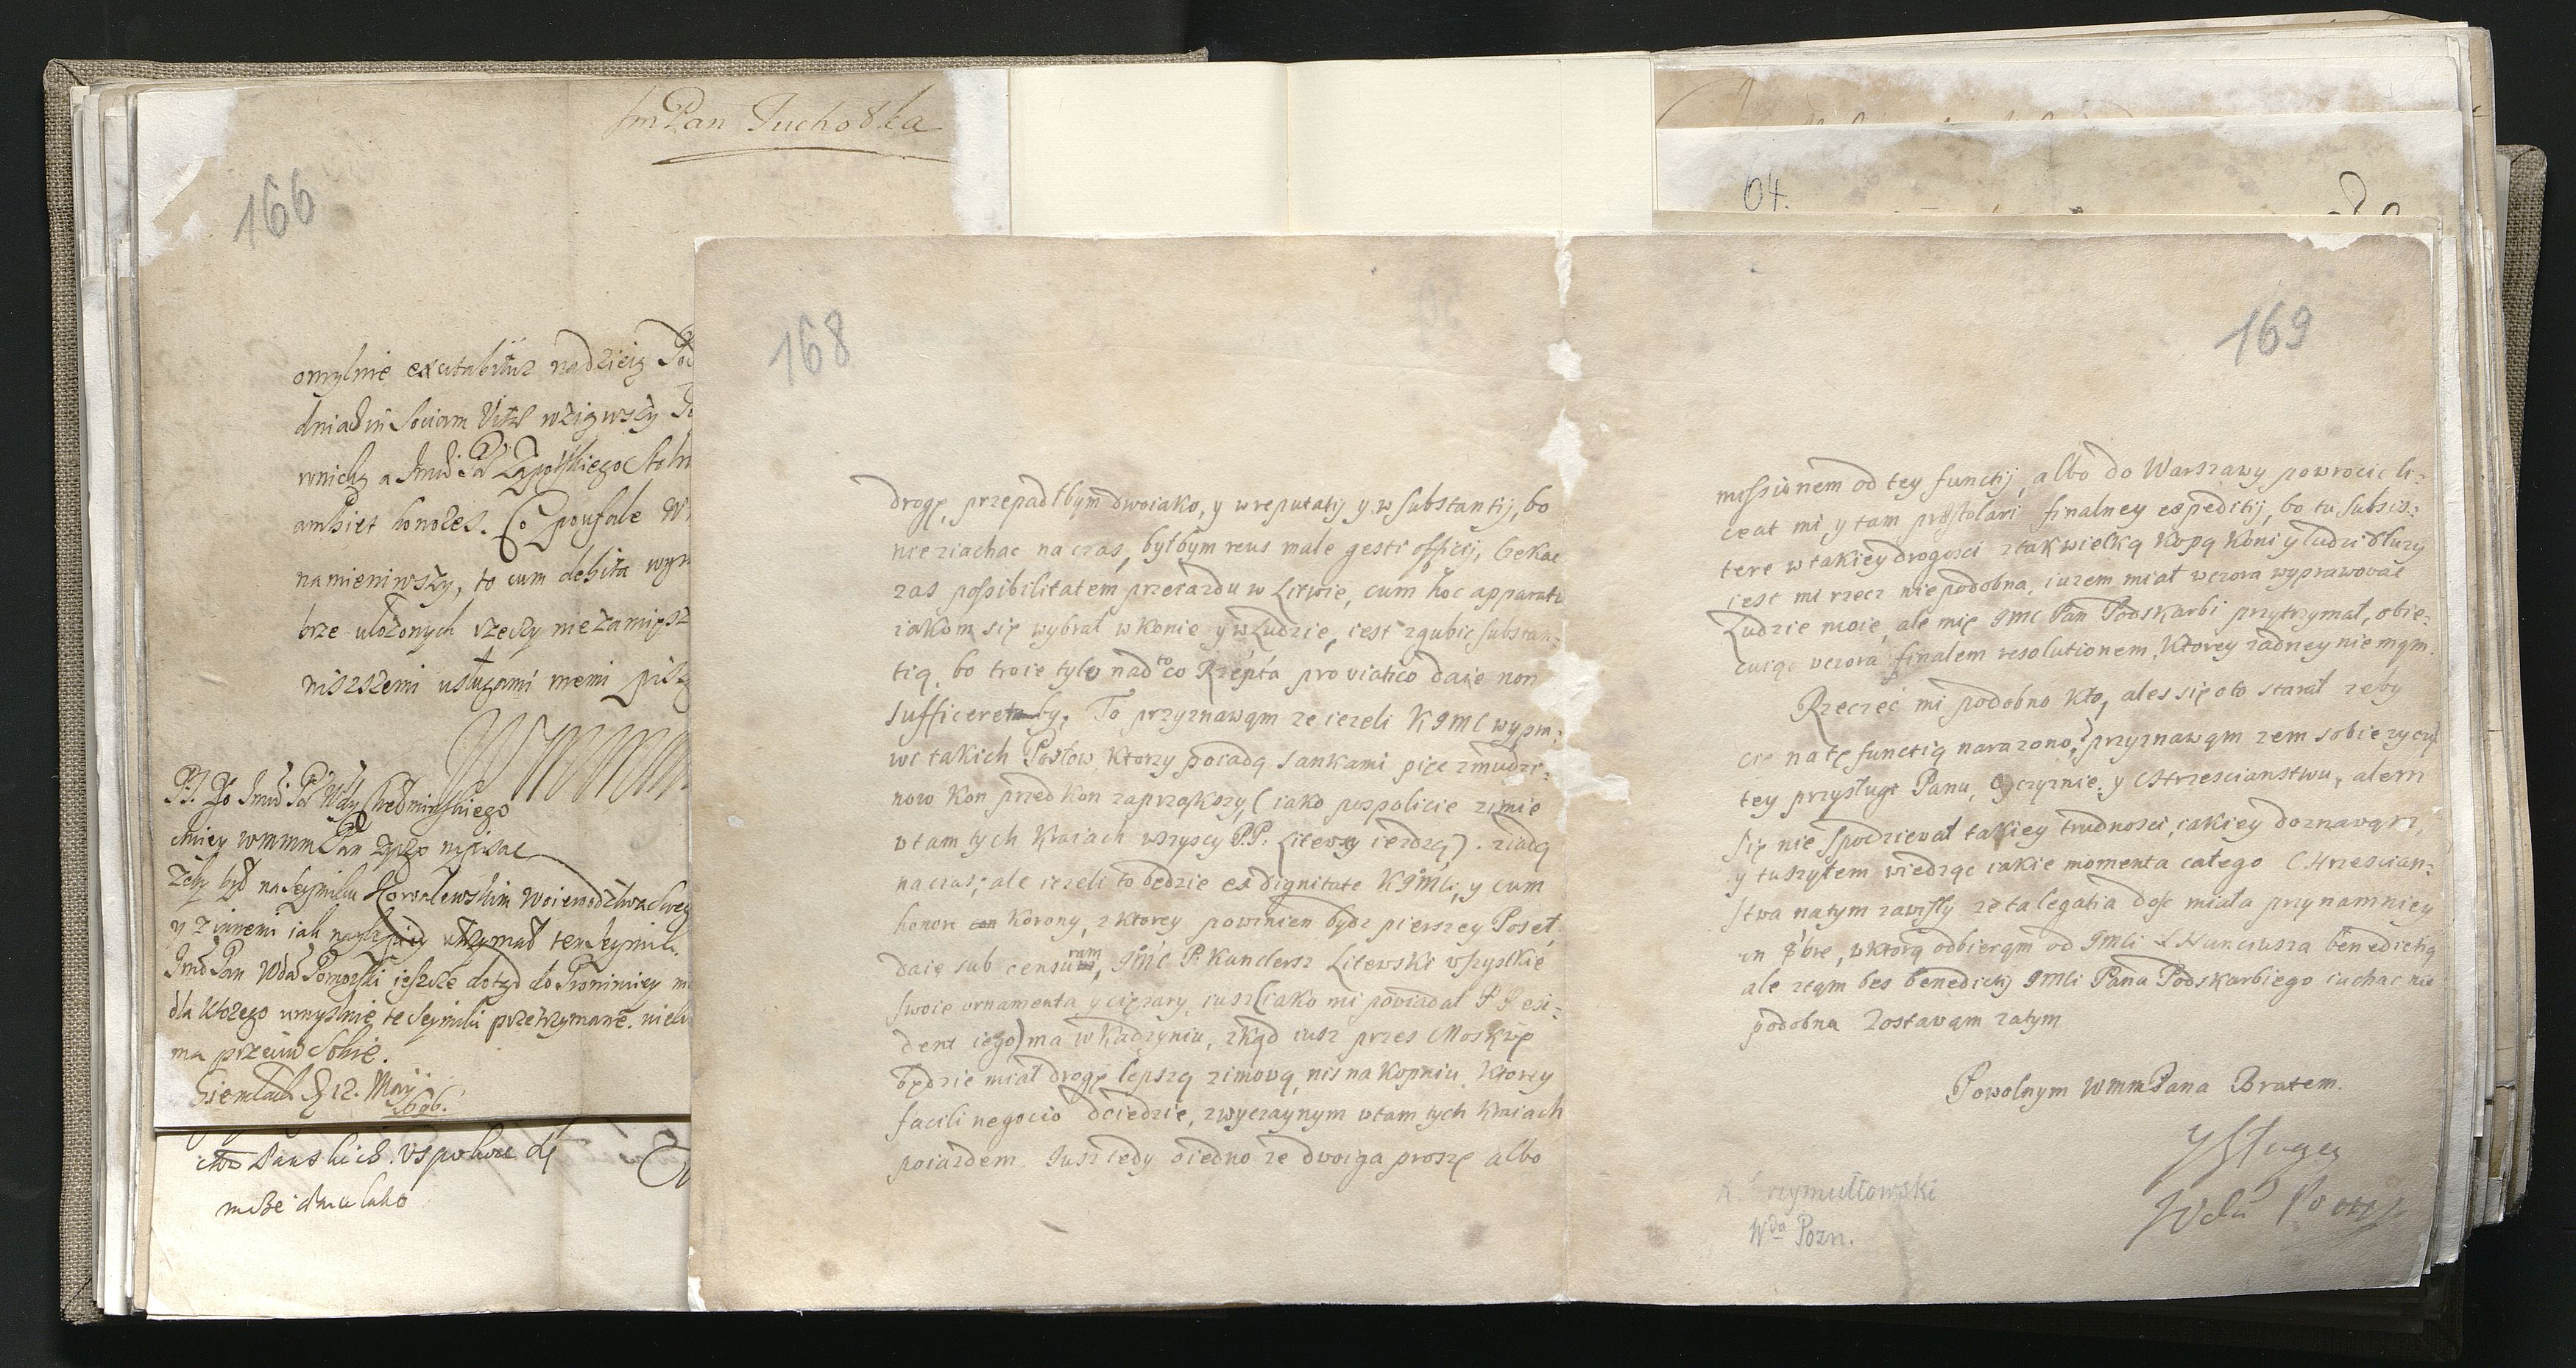 Jm Pan Tucholka
166
omylnie excitabitur nadzieią
dniach in Sociam Vitæ wziąwszy
wnichą a Jmci Pa Zapolskiego Stoln
ambiet honores. Co poufale
namieniwszy, to cum debita
brze ułożonych rzeczy nie
niższemi usługami memi piszę
PS. Do Jmci Pa Wdy Chełminskiego
chciey wmmm Pan
żeby był na Seymiku Kowalewskim Woiewodztwa
y z innemi iak utrzymał ten Seymik.
Jmć Pan Wda Pomorski ieszcze dotąd do
dla ktorego umyslnie te Seymiki przetrzymane.
ma przeciw sobie.
12. Maij
1696.
Panskich. uspokoie
168
drogę, przepadłbym dwoiako, y w reputatij y w substantij, bo
nie ziachac na czas, byłbym reus male gesti officij, czekac
zas possibilitatem przeiazdu w Litwie, cum hoc apparatu
iakom się wybrał w konie y w Ludzie, iest zgubic substan:
tią, bo troie tyle nad to co Rzepta pro viatico daie non
sufficeret by. To przyznawąm ze iezeli K JMC wypra:
wi takich Posłow, ktorzy poiadą sankami pięc zmudzi:
now kon przed kon zaprzągszy, (iako pospolicie zimie
w tam tych kraiach wszyscy P.P. Litewscy iezdzą). ziadą
na czas; ale iezeli to będzie ex dignitate K JMci, y cum
honore Korony, z ktorey powinien bydz pierszey Poseł,
daię sub censuram, JMC P. Kanclersz Litewski wszystkie
swoie ornamenta y cięzary, iusz (iako mi powiadał P Resi:
dent iego) ma w Kadzyniu, zkąd iusz przes Moskwę
będzie miał drogę lepszą zimową, nis na Kopniu, ktorey
facili negocio doiedzie, zwyczaynym w tam tych kraiach
poiazdem. Jusz tedy o iedno ze dwoyga proszę albo
169
missionem od tey functij, albo do Warszawy powrocic li:
ceat mi y tam præstolari finalney expeditij, bo tu subsis:
tere w takiey drogosci z tak wielką kopą koni y ludzi dłuzy
iest mi rzecz niepodobna, iuzem miał wczora wyprawowac
Ludzie moie, ale mię JMC Pan Podskarbi przytrzymał, obie:
cuiąc wczora finalem resolutionem, ktorey zadney nie mąm.
Rzeczec mi podobno kto, ales się oto starał zeby
cię na tę functią narazono, przyznawąm zem sobie zyczył
tey przysługi Panu, Oyczyznie, y Chrzescianstwu, alem
się nie spodziewał takiey trudnosci, iakiey doznawąm,
y tuszyłem wiedząc iakie momenta całego Chrzescian:
stwa natym zawisły ze ta legatia dosc miała przynamniey
in 8bre, w ktorą odbierąm od JMci X Nunciusza benedictią
ale ztąm bes benedictij JMci Pana Podskarbiego iachac nie
podobna Zostawąm zatym
Powolnym WmmPana Bratem.
y Sługą
Wda Pozn
K. Grzymułtowski
Wda Pozn.
04.